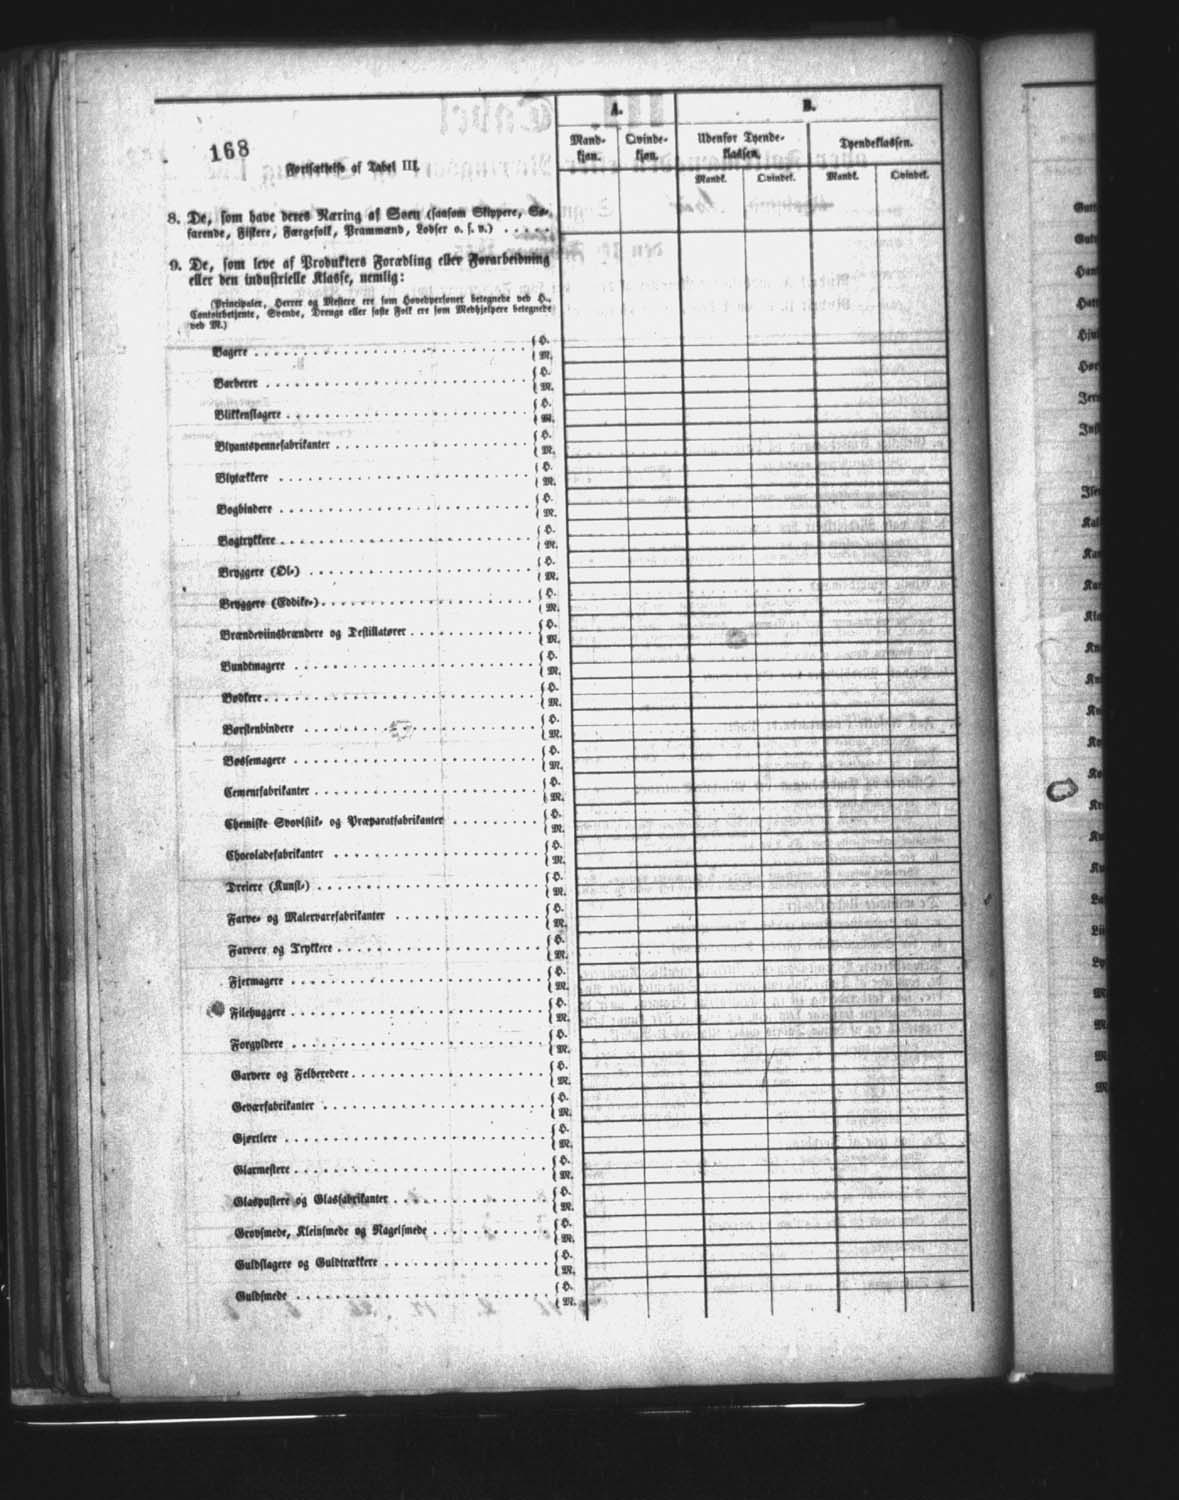 168
Fortsættelse af Tabel III.
A.
B.
Mand-
kjøn.
Qvinde-
kjøn.
Udenfor Tyende-
klassen.
Tyendeklassen.
Mandk.
Qvindek.
Mandk.
Qvindek.
8. De, som have deres Næring af Søen (saasom Skippere, Sø-
farende, Fiskere, Færgefolk, Prammænd, Lodser o. s. v.) . . . . .
9. De, som leve af Produkters Forædling eller Forarbeidning
eller den industrielle Klasse, nemlig:
(Principaler, Herrer og Mestere ere som Hovedpersoner betegnede ved H.,
Contoirbetjente, Svende, Drenge eller faste Folk ere som Medhjelpere betegnede
ved M.)
Bagere { H.
{ M.
Barberer { H.
{ M.
Blikkenslagere { H.
{ M.
Blyantspennefabrikanter { H.
{ M.
Blytækkere { H.
{ M.
Bogbindere { H.
{ M.
Bogtrykkere { H.
{ M.
Bryggere (Øl-) { H.
{ M.
Bryggere (Eddike-) { H.
{ M.
Brændeviinsbrændere og Destillatører { H.
{ M.
Bundtmagere { H.
{ M.
Bødkere { H.
{ M.
Børstenbindere { H.
{ M.
Bøssemagere { H.
{ M.
Cementfabrikanter { H.
{ M.
Chemiske Svovlstik- og Præparatfabrikanter { H.
{ M.
Chocoladefabrikanter { H.
{ M.
Dreiere (Kunst-) { H.
{ M.
Farve- og Malervarefabrikanter { H.
{ M.
Farvere og Trykkere { H.
{ M.
Fjermagere { H.
{ M.
Filehuggere { H.
{ M.
Forgyldere { H.
{ M.
Garvere og Felberedere { H.
{ M.
Geværfabrikanter { H.
{ M.
Gjørtlere { H.
{ M.
Glarmestere { H.
{ M.
Glaspustere og Glasfabrikanter { H.
{ M.
Grovsmede, Kleinsmede og Nagelsmede { H.
{ M.
Guldslagere og Guldtrækkere { H.
{ M.
Guldsmede { H.
{ M.